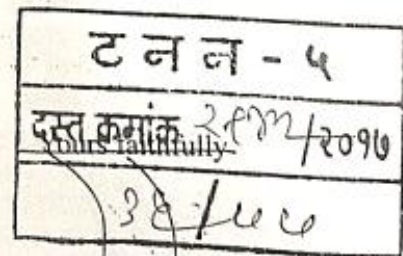 ट न न - ५
दस्त क्रमांक /२०१७
Yours faithfully
३६/५५